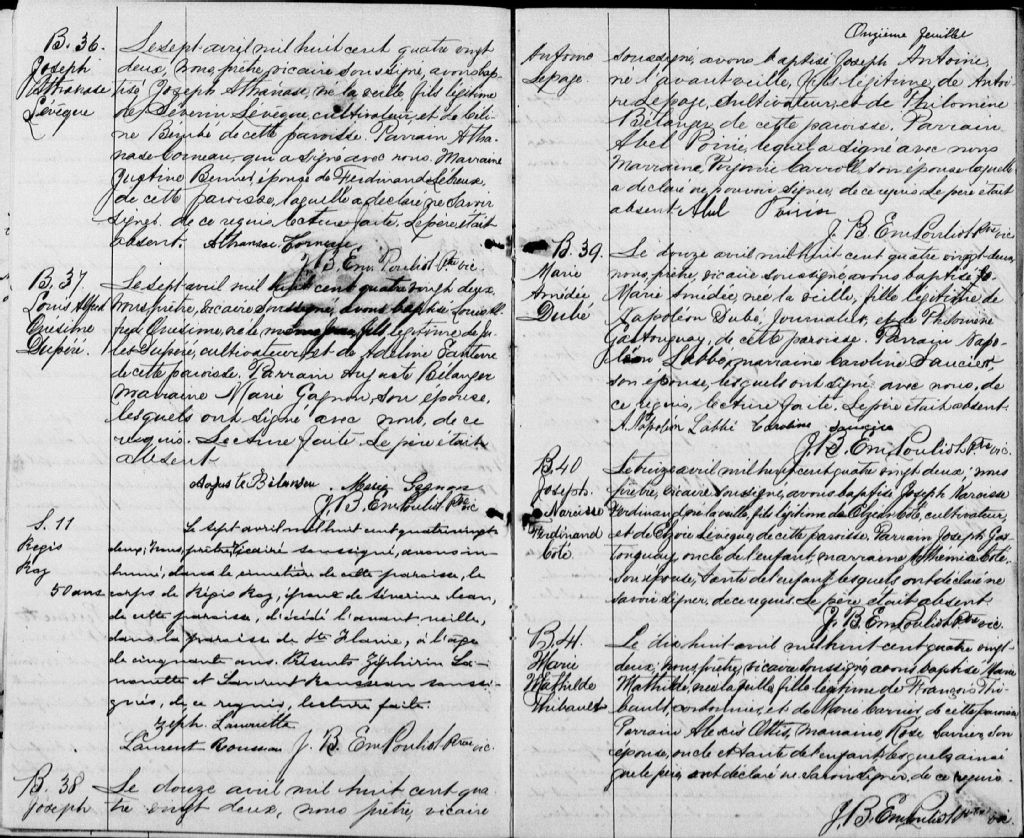 B. 36.
Joseph
Athanase
Lévêque
Le sept avril mil huit cent quatre vingt
deux, nous, prêtre, vicaire soussigné, avons bap-
tisé Joseph Athanase, né la veille, fils légitime
de Séverin Lévêque, cultivateur, et de
de cette paroisse. Parrain Atha-
nase Corneau, qui a signé avec nous. Marraine
Justine épouse de Ferdinand
de cette paroisse, laquelle a déclaré ne savoir
signer de ce requis. Lecture faite. Le père était
absent.
J. B. Em. Pouliot Ptre vic.
B. 37.
Louis Alfred
Onésime
Dupéré.
Le sept avril mil huit cent quatre vingt deux,
nous, prêtre, vicaire soussigné, avons baptisé Louis Al-
fred Onésime, né le même jour, fils légitime de Ju-
les Dupéré, cultivateur, et de Adeline
de cette paroisse. Parrain Auguste Bélanger
marraine Marie Gagnon, son épouse,
lesquels ont signé avec nous, de ce
requis. Lecture faite. Le père était
absent.
Auguste Bélanger. Gagnon
J. B. Em Pouliot Ptre vic
S. 11
Régis
Roy
50 ans
Le sept avril mil huit cent quatre vingt
deux, nous, prêtre, vicaire soussigné, avons in-
humé, dans le cimetière de cette paroisse, le
corps de Régis Roy, époux de Séverine
de cette paroisse, décédé l'avant veille,
dans la paroisse de Ste Flavie, à l'âge
de cinquante ans. Présents Zéphirin La-
et Laurent Rousseau soussi-
gnés, de ce requis, lecture faite.
Zeph.
Laurent J. B. Em Pouliot Ptre vic.
B. 38
Joseph
Le douze avril mil huit cent qua-
tre vingt deux, nous prêtre, vicaire
Onzième feuillet
Antoine
Lepage.
soussigné, avons baptisé Joseph Antoine,
né l'avant veille, fils légitime de Antoi-
ne Lepage, cultivateur, et de Philomène
Bélanger de cette paroisse. Parrain
Abel lequel a signé avec nous
Marraine, Carroll, son épouse laquelle
a déclaré ne pouvoir signer, de ce requis. Le père était
absent. Abel
J. B. Em Pouliot Ptre vic
B. 39.
Marie
Amédée
Dubé
Le douze avril mil huit cent quatre vingt deux,
nous, prêtre, vicaire soussigné, avons baptisé
Marie Amédée, née la veille, fille légitime de
Napoléon Dubé, Journalier, et de Philomène
Gastonguay, de cette paroisse. Parrain Napo-
léon Labbé, marraine Caroline Saucier,
son épouse, lesquels ont signé avec nous, de
ce requis, lecture faite. Le père était absent.
Napoléon Labbé Caroline
J. B. Em Pouliot Ptre vic.
B. 40
Joseph
Narcisse
Ferdinand
Coté
Le treize avril mil huit cent quatre vingt deux, nous
prêtre, vicaire soussigné, avons baptisé Joseph Narcisse
Ferdinand, né la veille, fils légitime de Coté, cultivateur,
et de Lévêque, de cette paroisse. Parrain Joseph Gas-
tonguay, oncle de l'enfant, marraine Coté,
son épouse, tante de l'enfant, lesquels ont déclaré ne
savoir signer, de ce requis. Le père était absent
J. B. Em Pouliot Ptre vic.
B. 41.
Marie
Mathilde
Thibault
Le dix huit avril mil huit cent quatre vingt
deux, nous, prêtre, vicaire soussigné, avons baptisé Marie
Mathilde, née la veille, fille légitime de François Thi-
bault, cordonnier, et de Marie de cette paroisse
Parrain Alexis Ottis, marraine Rose son
épouse, oncle et tante de l'enfant, lesquels ainsi
que le père, ont déclaré ne savoir signer, de ce requis
J. B. Em Pouliot Ptre vic.